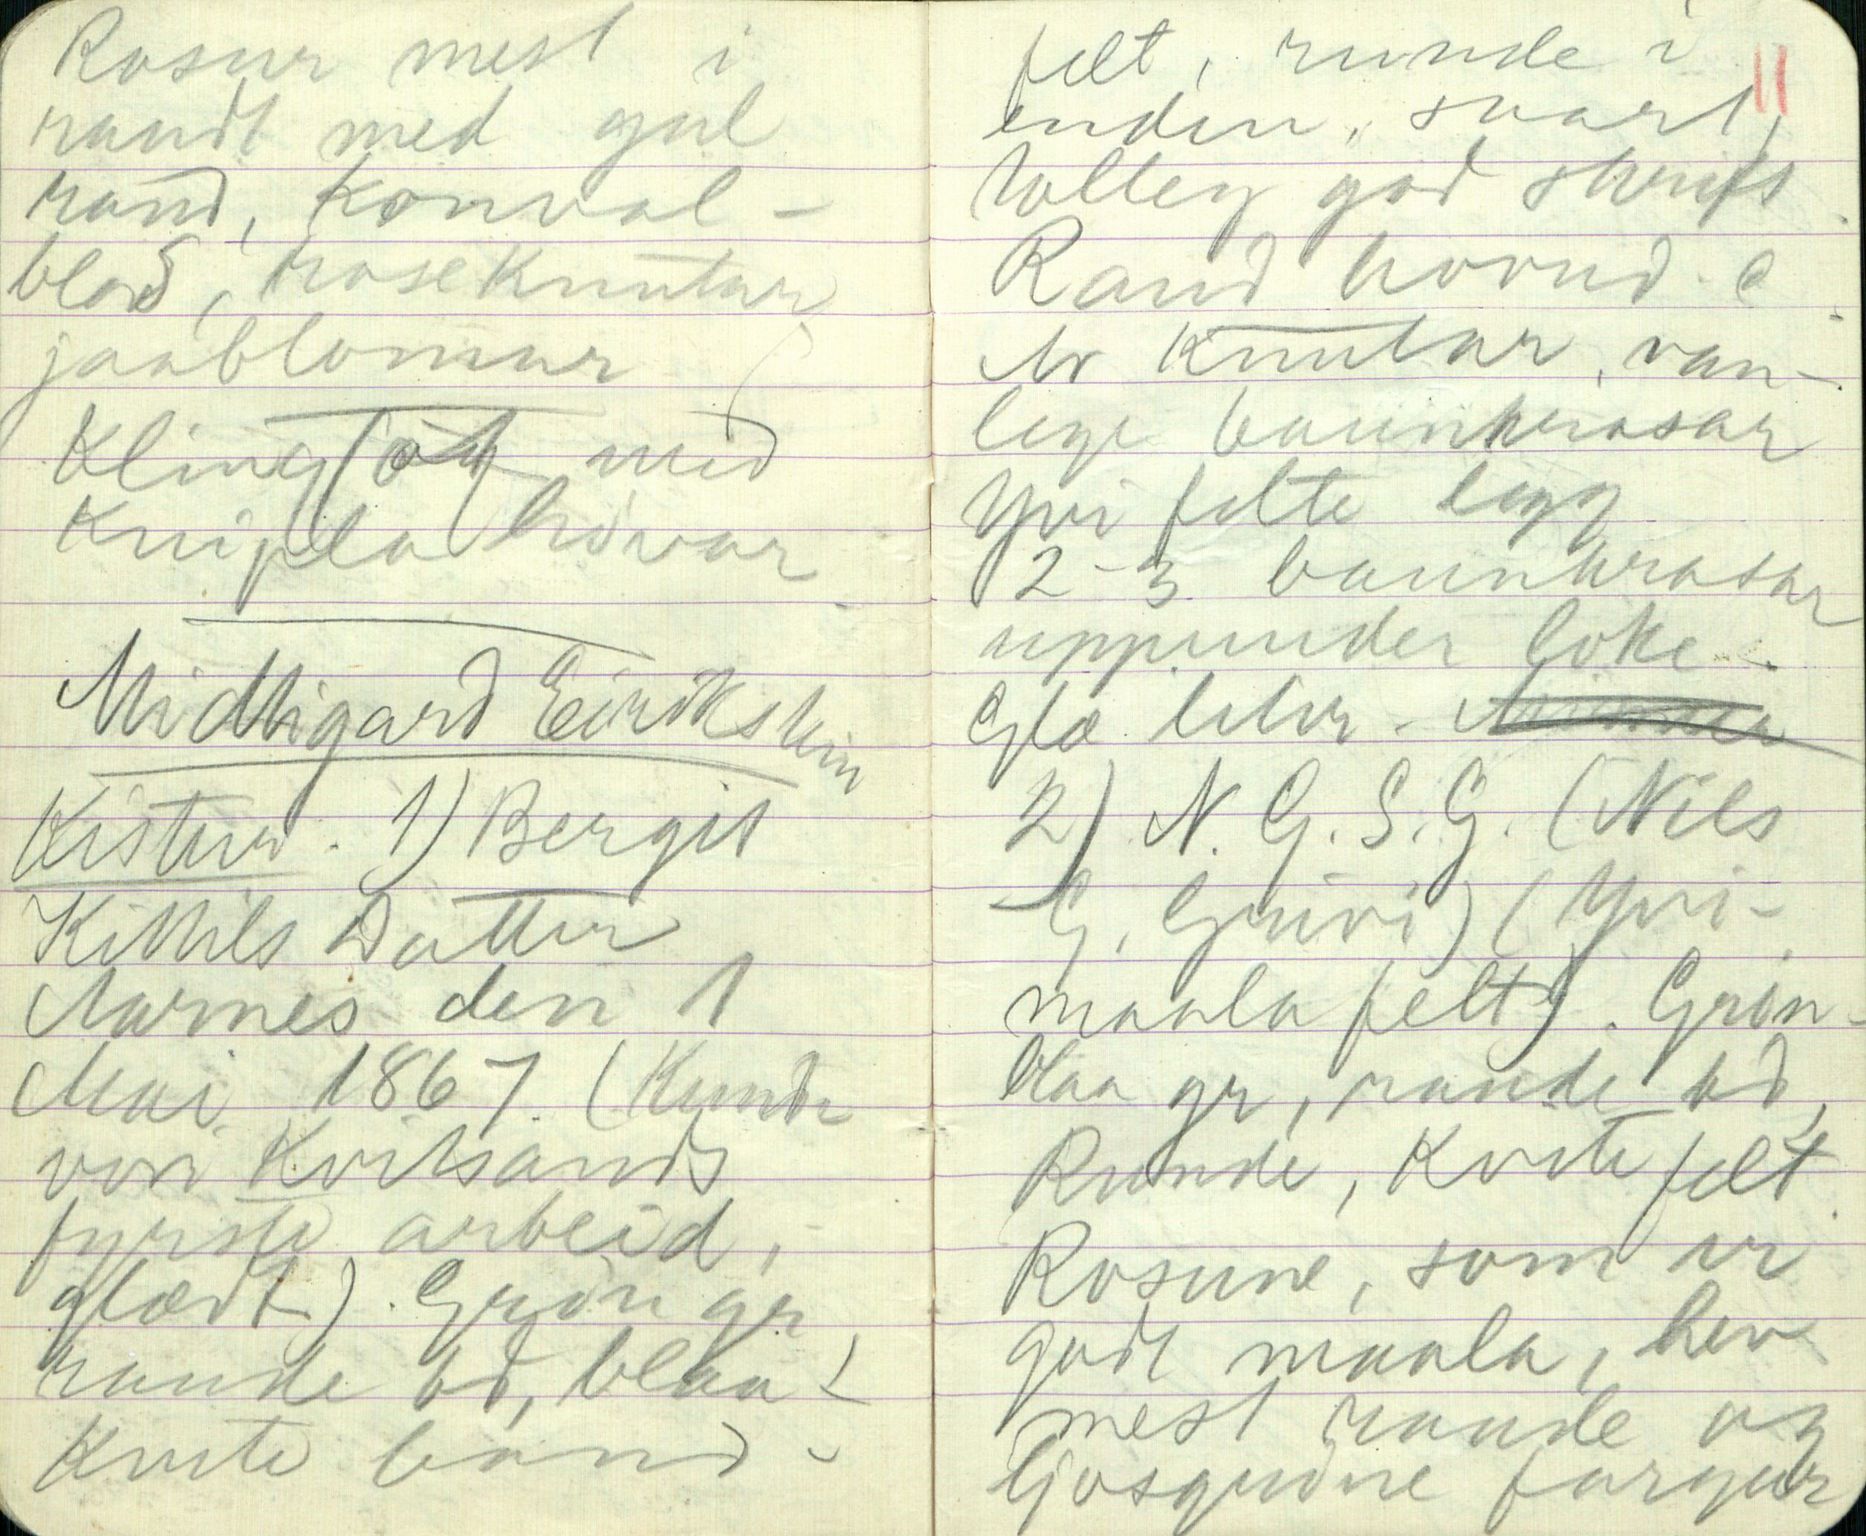 Rosur mest i
raudt med gul
rand, Konval-
blad, rose Knutar
jaablomur
Klinglok med
Knipla hòvar.
Midtligard Eirikstein
Kistur. 1) Bergit
Kittils Datter
Aarnes den 1
Mai. 1867. (Kunde
von Kvitsands
fyrste arbeid,
glædt). Grøn gr
raude òd, blaa +
Kvite band -
felt, runde i
enden, svart,
god skrift.
Raud hovud.
Av Knutar, van-
lege baunkrosar
Yvi felte ligg
2-3 baunkrosar
uppunder loke.
Gla letir.
2) N. G. S. G. (Nils
G. Gruvi) (Yvi-
maala felt). Grøn-
blaa gr, raude òd,
Runde, Kvite felt.
Rosune, som er
godt maala, hev
mest raude og
ljosgrøne fargur
11